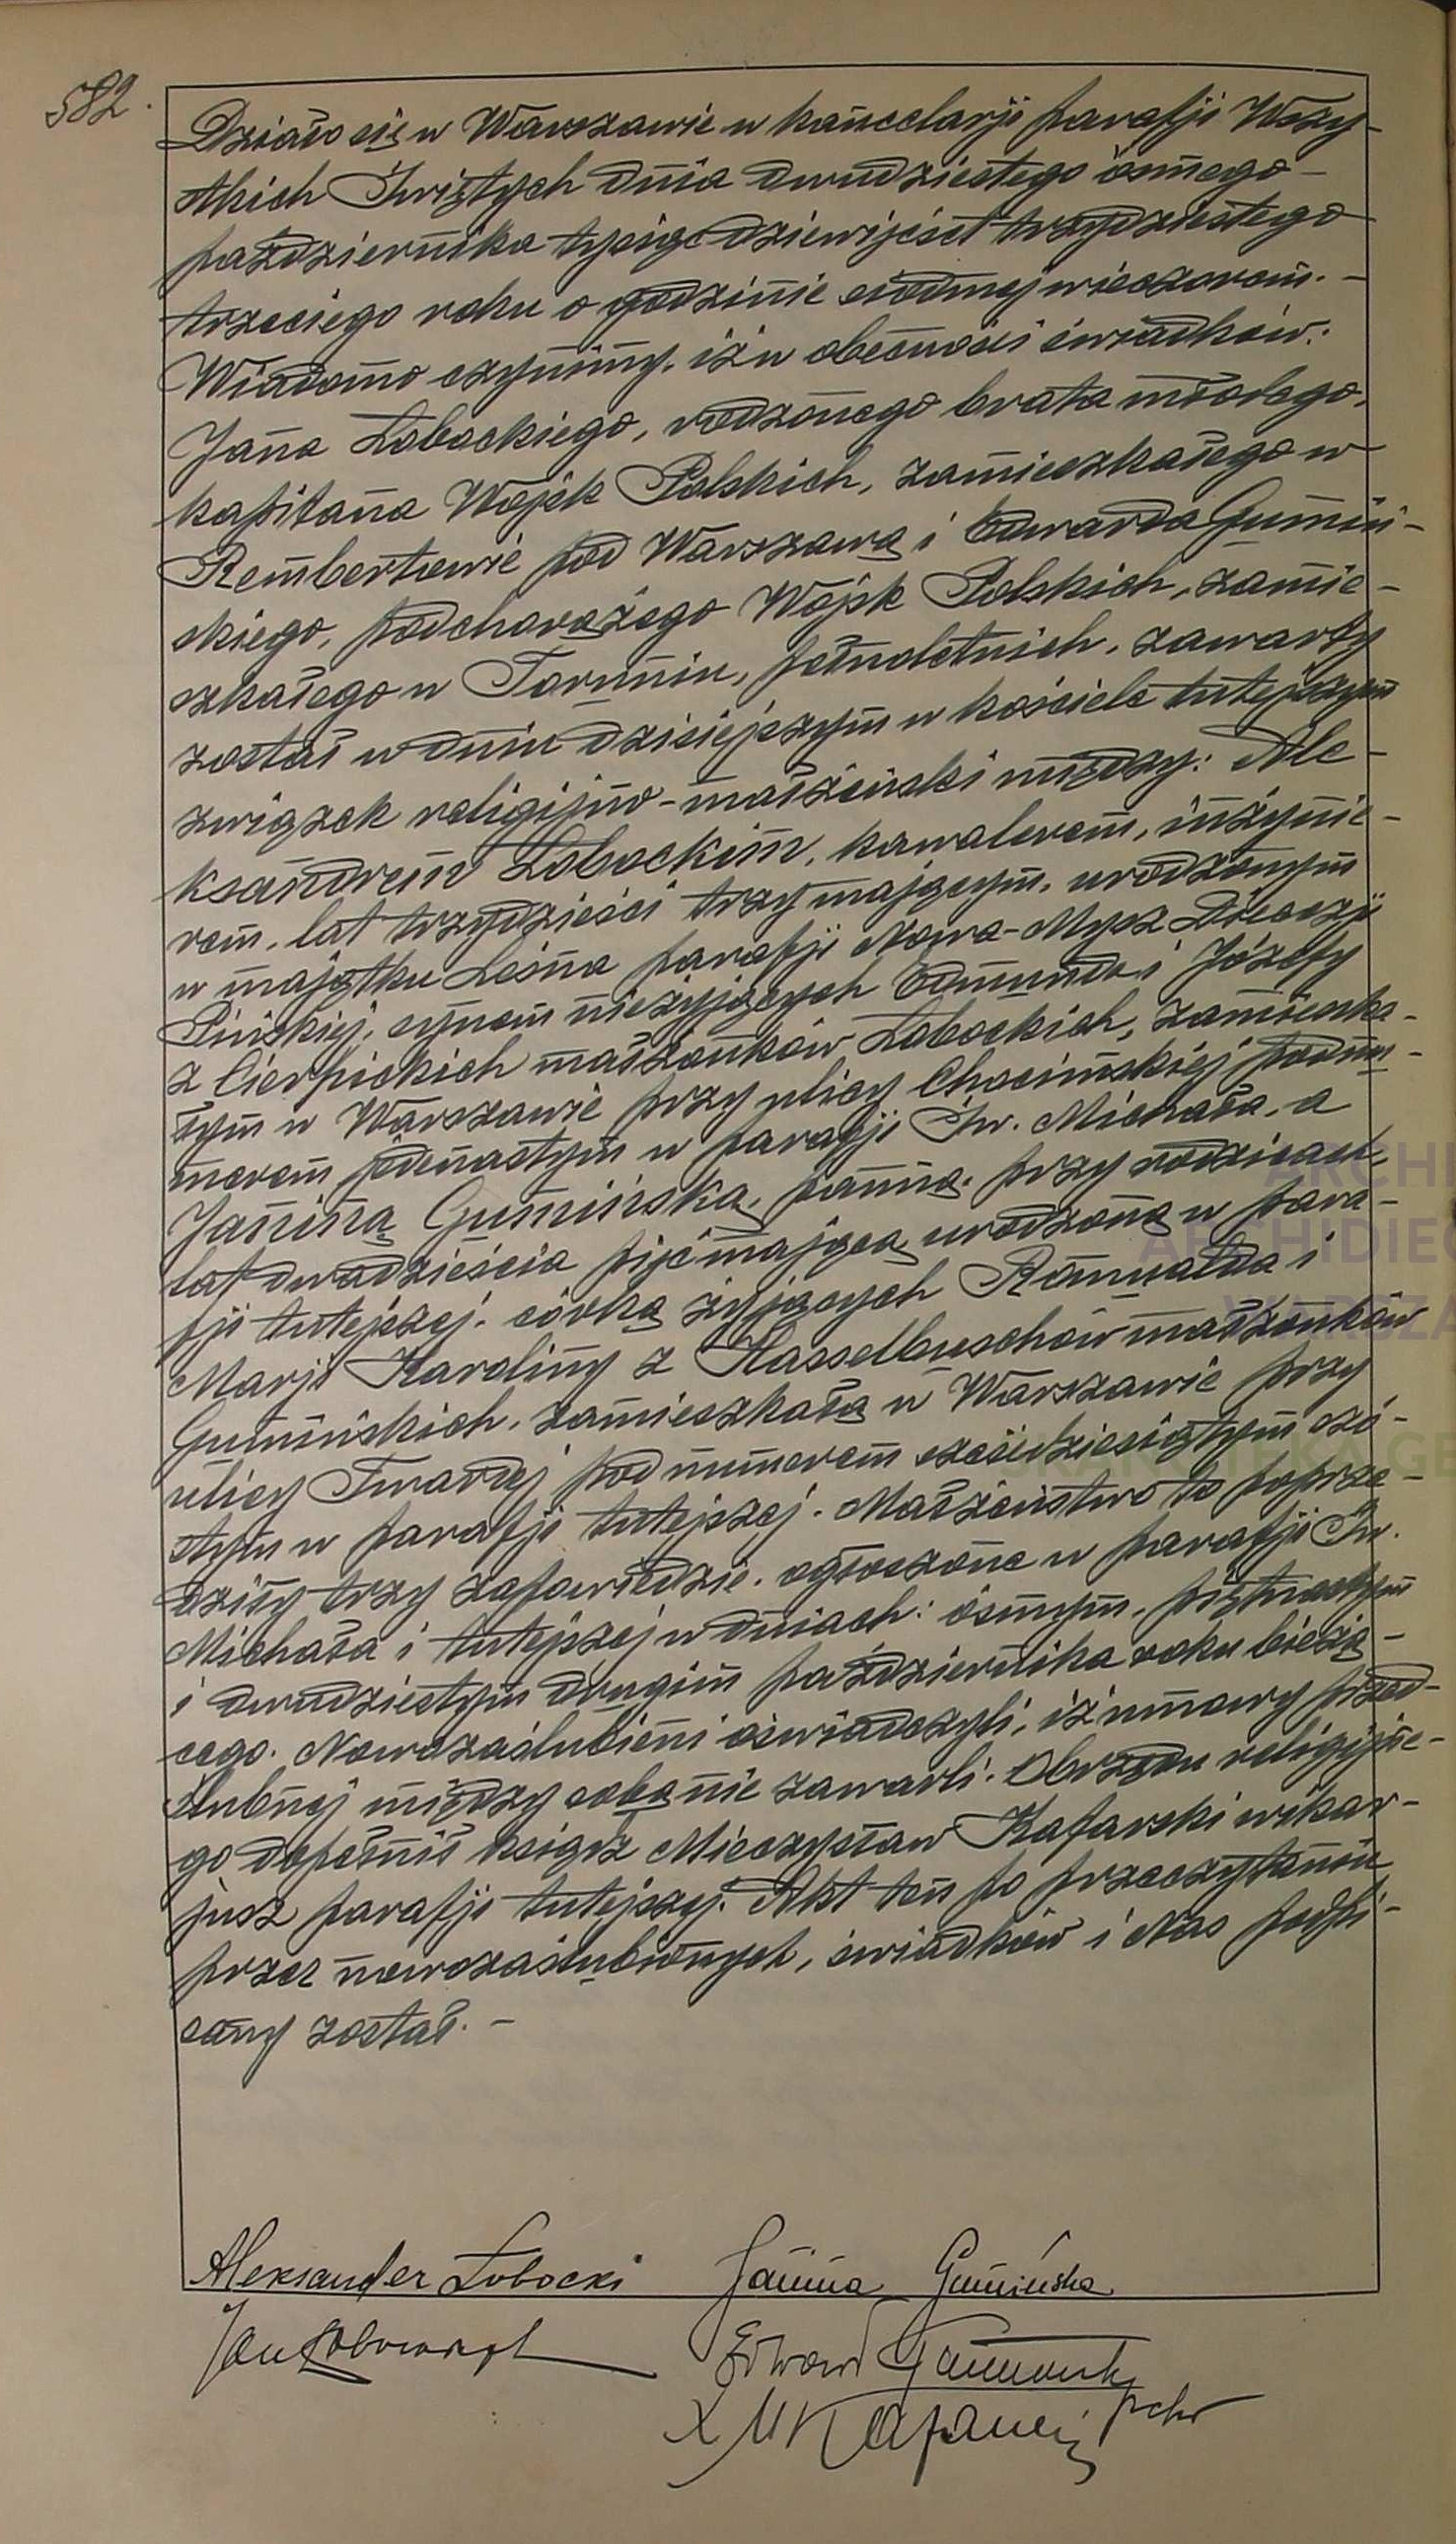 582.
Działo się w Warszawie w kancelarji parafji Wszy-
stkich Świętych dnia dwudziestego ósmego -
października tysiąc dziewięćset trzydziestego
trzeciego roku o godzinie siódmej wieczorem. -
Wiadomo czynimy, iż w obecności świadków:
Jana Łobockiego, rodzonego brata młodego,
kapitana Wojsk Polskich, zamieszkałego w
Rembertowie pod Warszawą i Edwarda Gumiń-
skiego, podchorążego Wojsk Polskich, zamie-
szkałego w Toruniu, pełnoletnich, zawarty
został w dniu dzisiejszym w kościele tutejszym
związek religijno-małżeński między: Ale-
ksandrem Łobockim, kawalerem, inżynie-
rem, lat trzydzieści trzy mającym, urodzonym
w majątku Leśna parafji Nowa-Mysz Diecezji
Pińskiej, synem nieżyjących Edmunda i Józefy
z Cierpickich małżonków Łobockich, zamieszka-
łym w Warszawie przy ulicy Chocimskiej pod nu-
merem jedenastym w parafji Św. Michała, a
Janiną Gumińską, panną, przy rodzicach,
lat dwadzieścia pięć mającą urodzoną w para-
fji tutejszej, córką żyjących Romualda i
Marji Karoliny z Hasselbuschów małżonków
Gumińskich, zamieszkałą w Warszawie przy
ulicy Twardej pod numerem sześćdziesiątym szó-
stym w parafji tutejszej. Małżeństwo to poprze-
dziły trzy zapowiedzie, ogłoszone w parafji Św.
Michała i tutejszej w dniach: ósmym, piętnastym
i dwudziestym drugim października roku bieżą-
cego. Nowozaślubieni oświadczyli, iż umowy przed-
ślubnej między sobą nie zawarli. Obrzędu religijne-
go dopełnił ksiądz Mieczysław Kafarski wikar-
jusz parafji tutejszej. Akt ten po przeczytaniu
przez nowozaślubionych, świadków i Nas podpi-
sany został. -
Aleksander Łobocki Janina Gumińska
Jan Edward Gumiński
pchr
X M Kafarski